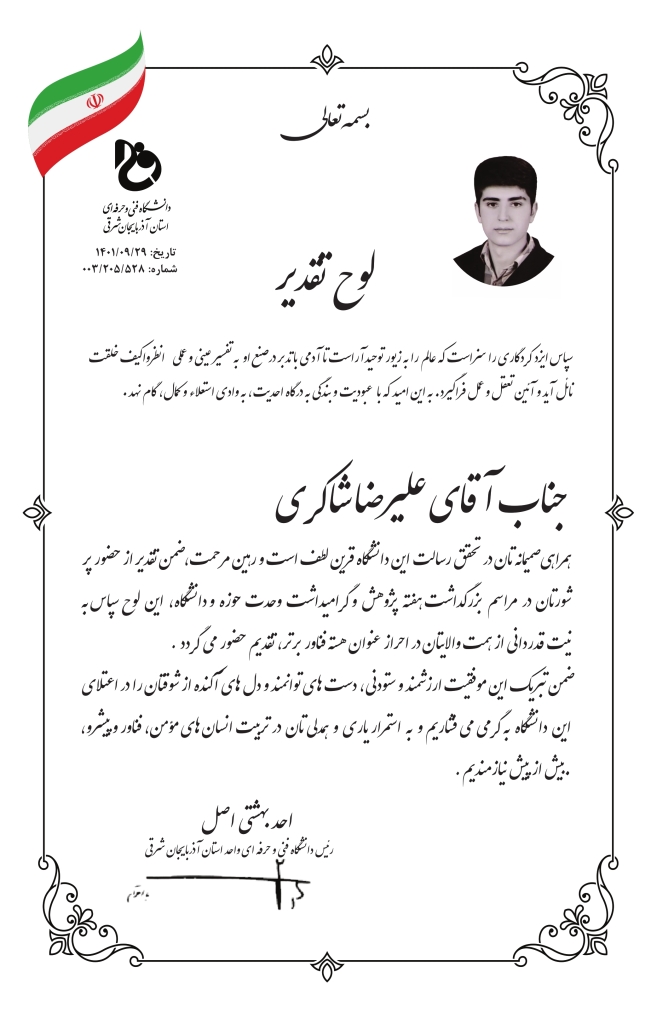 بسمه تعالی
دانشگاه فنی و حرفه ای
استان آذربایجان شرقی
تاریخ: ۱۴۰۱/۰۹/۲۹
شماره: ۰۰۳/۲۰۵/۵۲۸
لوح تقدیر
سپاس ایزد کردگاری را سزاست که عالم را به زیور توحید آراست تا آدمی با تدبر در صنع او به تفسیر عینی و علی انظروا کیف خلقت
نائل آید و آئین تعقل و عمل فراگیرد. به این امید که با عبودیت و بندگی به درگاه احدیت، به وادی استعلاء و کمال، گام نهد.
جناب آقای علیرضا شاکری
همراهی صمیمانه تان در تحقق رسالت این دانشگاه قرین لطف است و رهین مرحمت، ضمن تقدیر از حضور پر
شورتان در مراسم بزرگداشت هفته پژوهش و گرامیداشت وحدت حوزه و دانشگاه، این لوح سپاس به
نیت قدردانی از همت والایتان در احراز عنوان هسته فناور برتر، تقدیم حضور می گردد .
ضمن تبریک این موفقیت ارزشمند و ستودنی، دست های توانمند و دل های آکنده از شوقتان را در اعتلای
این دانشگاه به گرمی می فشاریم و به استمرار یاری و همدلی تان در تربیت انسان های مؤمن، فناور و پیشرو،
بیش از پیش نیازمندیم .
احد بهشتی اصل
رئیس دانشگاه فنی و حرفه ای واحد استان آذربایجان شرقی